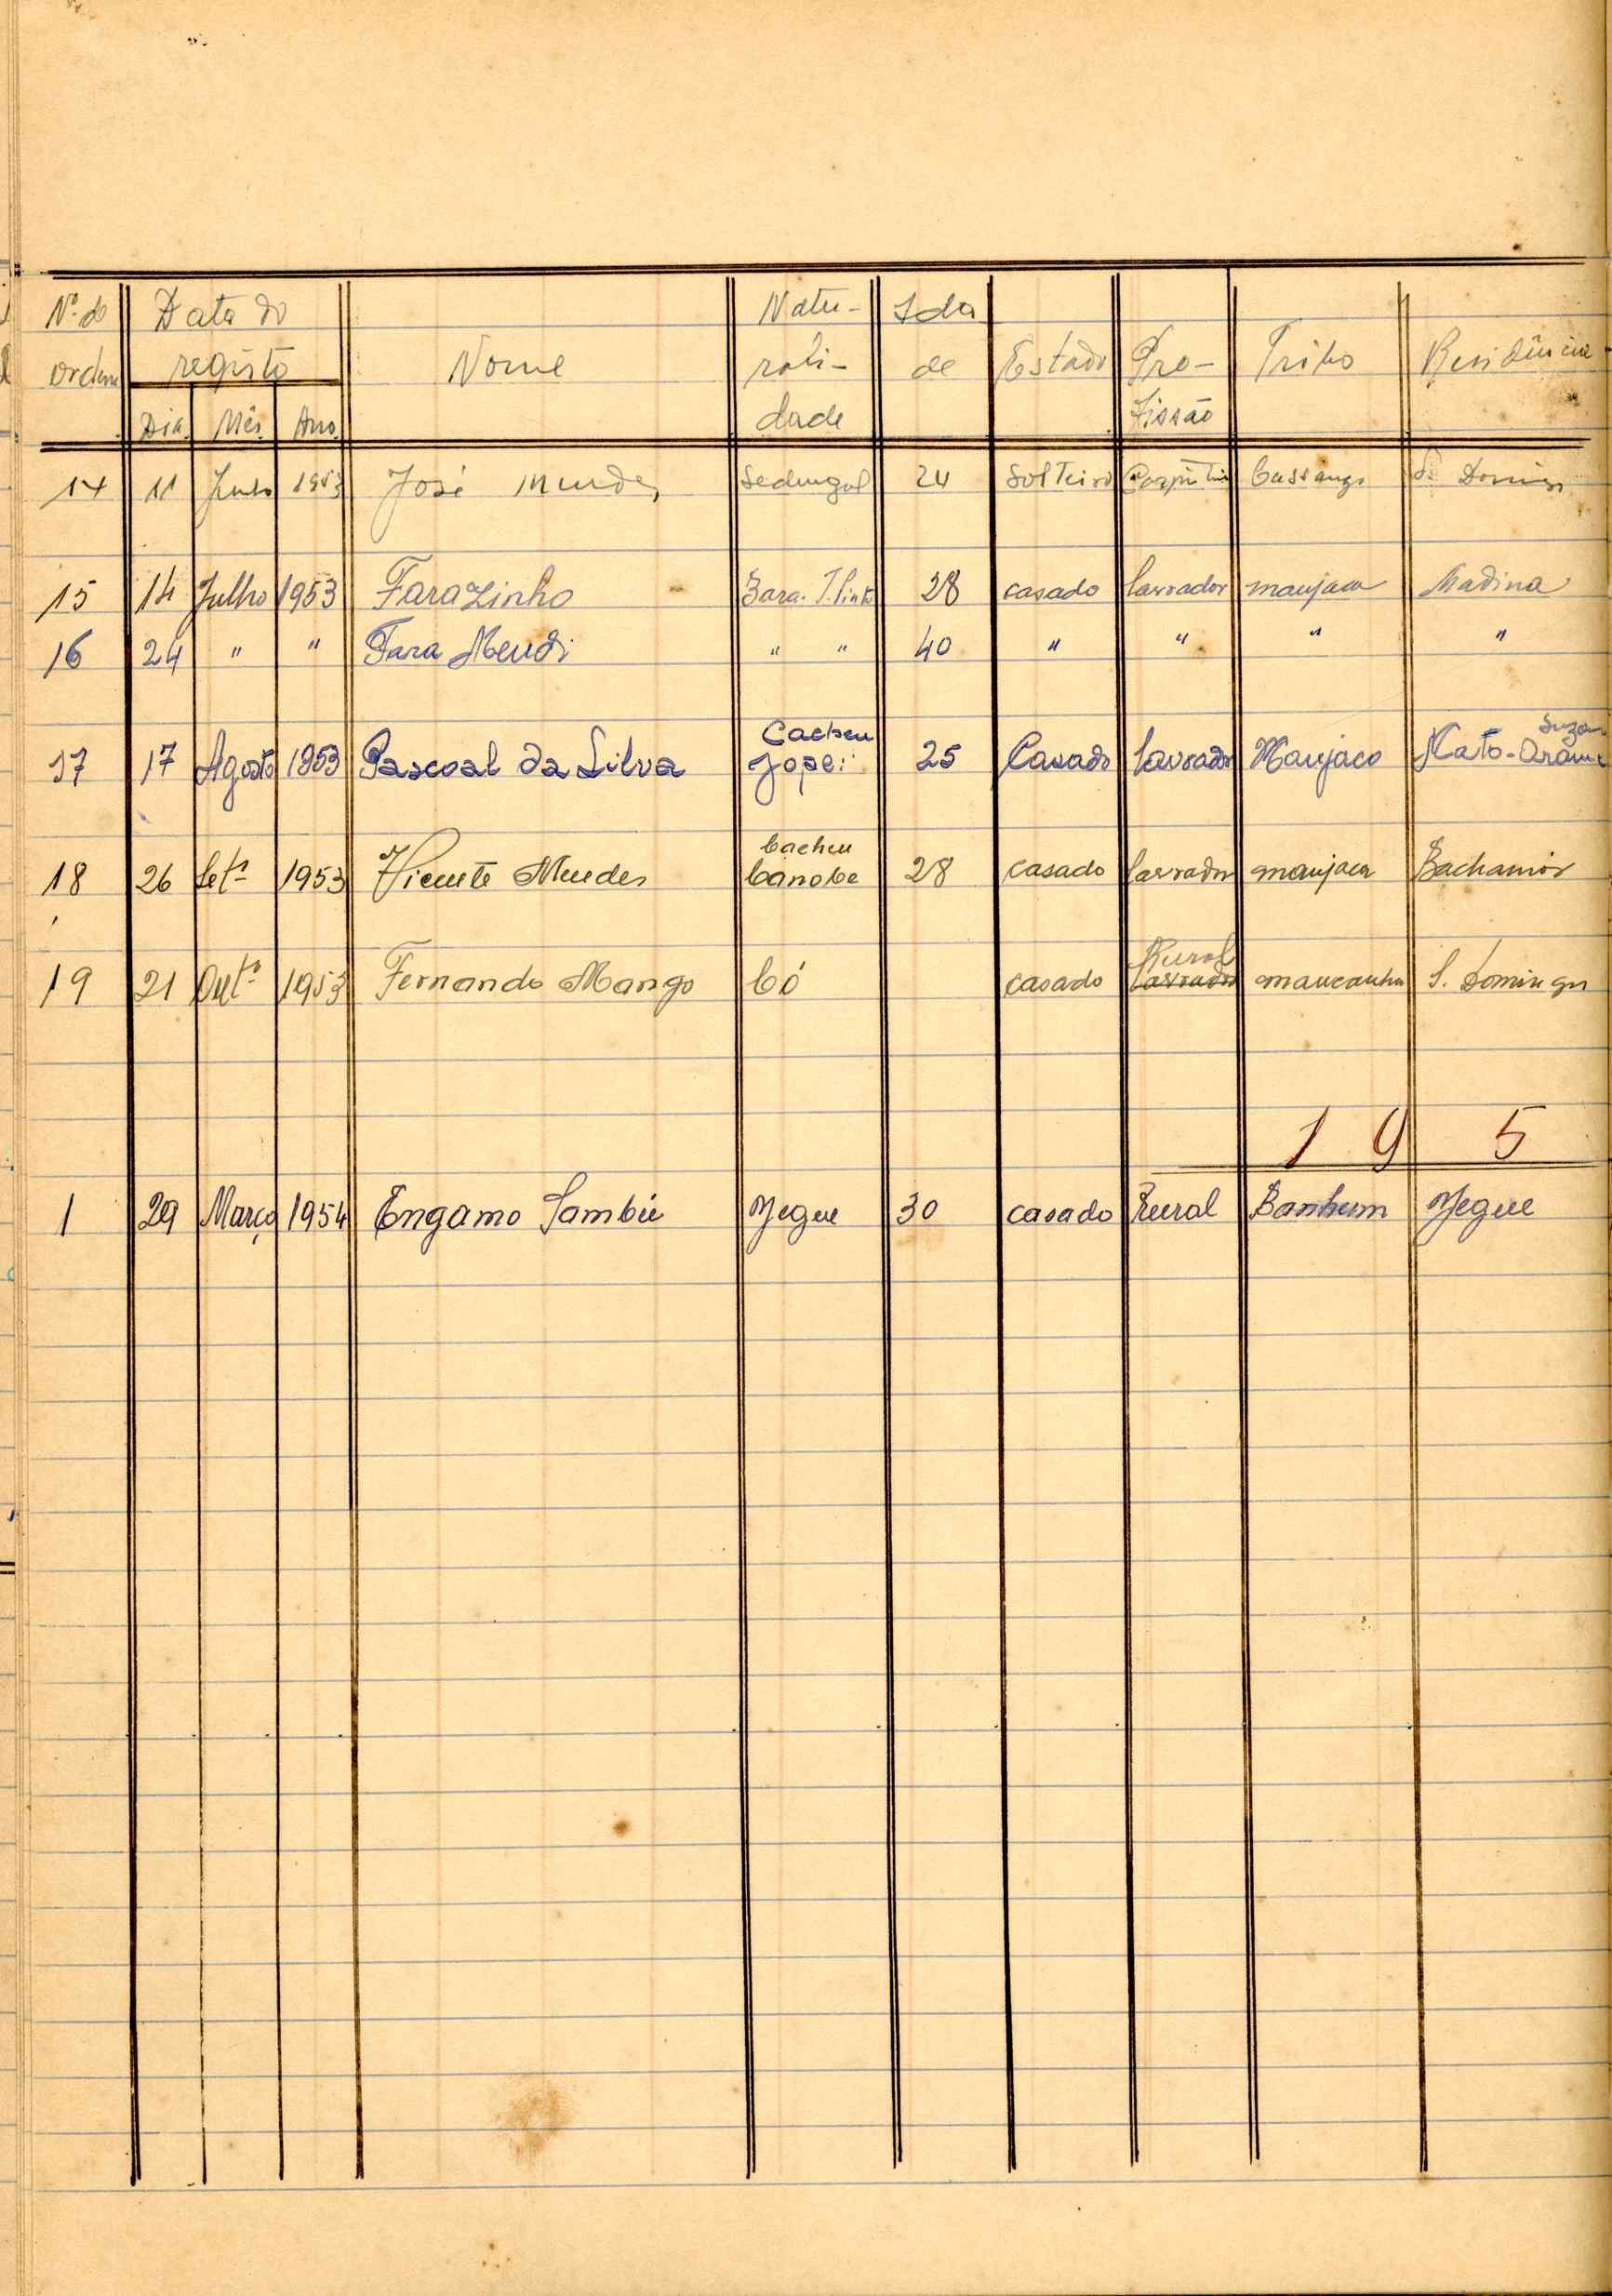 Nº de Data do Natu- Ida
ordem registo Nome rali- de Estado Pro- Tribo Residência
Dia Mês Ano dade fissão
14 11 Junho 1953 José Mendes Sedengal 24 Solteiro Cassanga S. Domingos
15 14 Julho 1953 Farazinho 28 casado lavrador manjaca Madina
16 24 " " Fara Mendi " " 40 " " " "
Cacheu Suzana
17 17 Agosto 1953 Pascoal da Silva Jopei 25 Casado lavrador Manjaco Mato-Arame
Cacheu
18 26 Setº 1953 Vicente Mendes Canobe 28 casado lavrador manjaca Bachamór
Rural
19 21 Outº 1953 Fernando Mango Có casado lavrador mancanha S. Domingos
1 9 5
1 29 Março 1954 Engamo Sambú Jegue 30 casado Rural Banhum Jegue